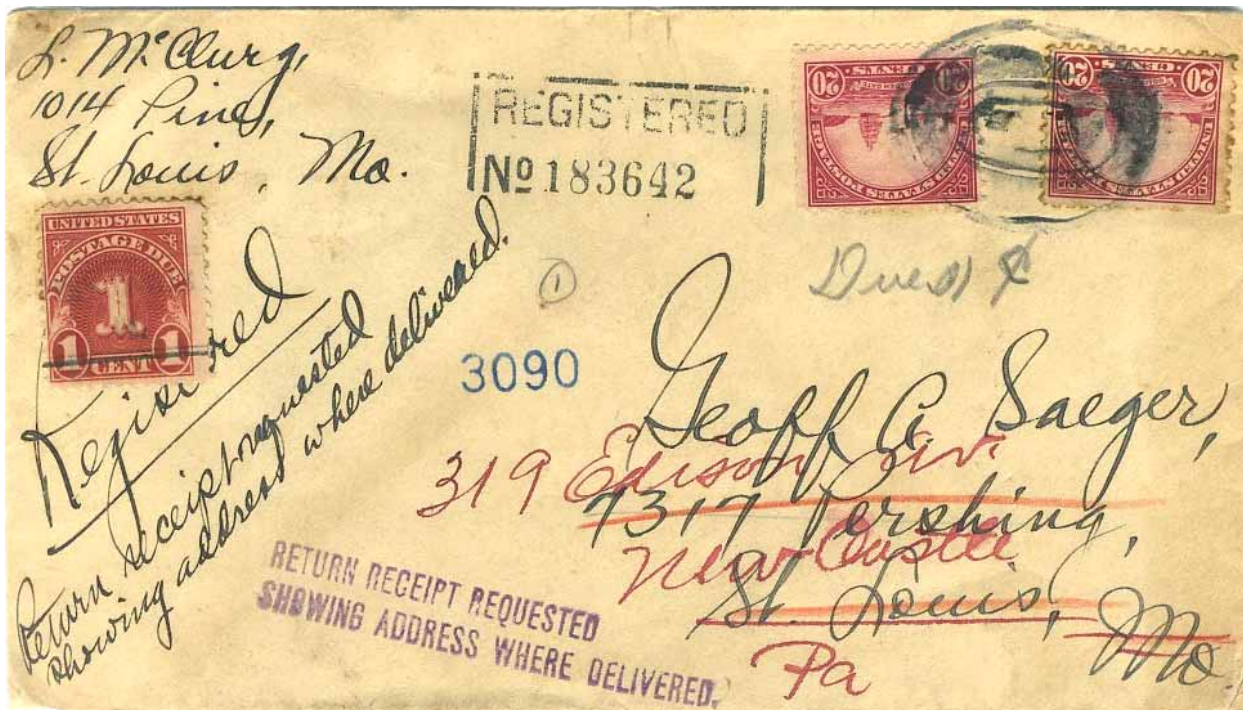 L. McClurg,
1014 Pine,
St. Louis, Mo.
REGISTERED
No 183642
20 CENTS 20
UNITED STATES POSTAGE
20 CENTS 20
UNITED STATES POSTAGE
UNITED STATES
POSTAGE DUE
1
1 CENT 1
Registered
Return receipt requested
showing address where delivered.
1
Due ¢
3090
Geoff A. Saeger,
319 Edison Av.
7317 Pershing,
New Castle
St. Louis, Mo
Pa
RETURN RECEIPT REQUESTED
SHOWING ADDRESS WHERE DELIVERED.